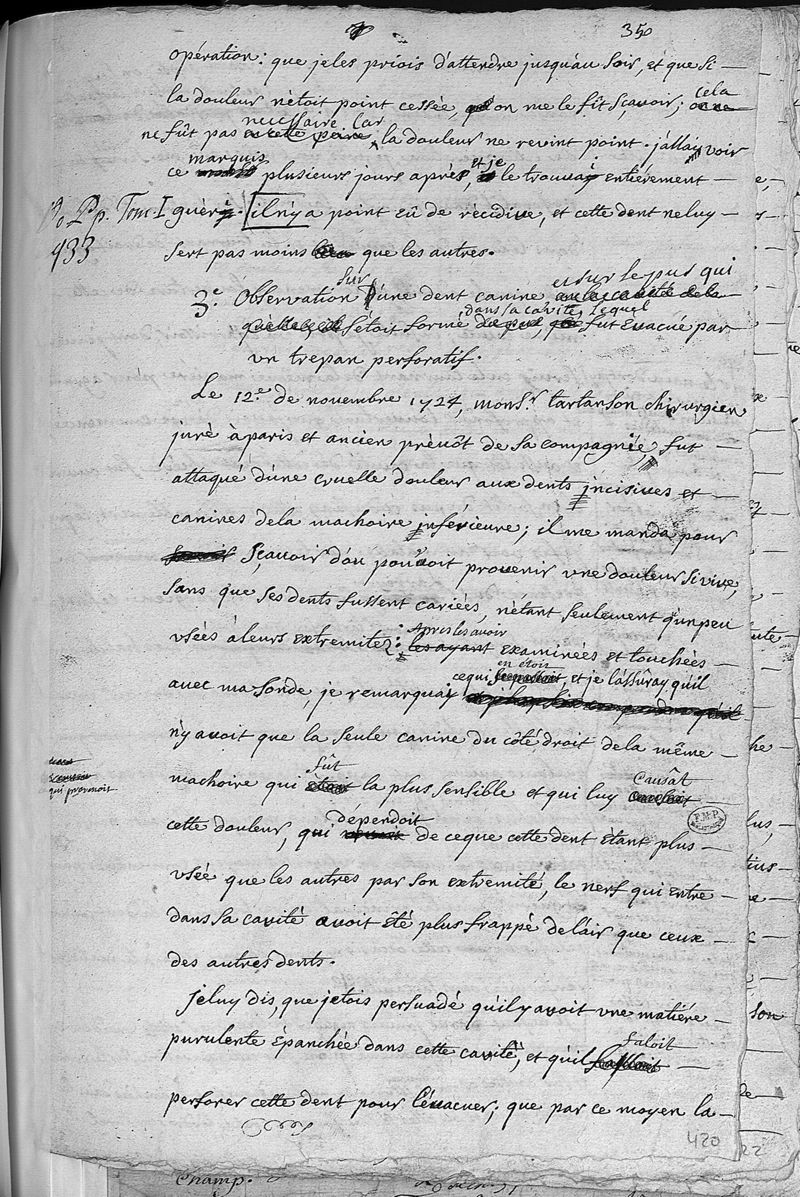 350
opération: que je les priois d'attendre jusqu'au soir, et que si
la douleur n'étoit point cessée, on me le fit sçavoir; cela
ne fût pas necessaire Car la douleur ne revint point. j'allay voir
ce marquis plusieurs jours après, et je le trouvay entiérement
Tom. I guéri. il n'y a point eû de récidive, et cette dent ne luy
433
sert pas moins que les autres.
3.e Observation Sur d'une dent canine, et sur le pus qui
s'étoit formé dans sa cavité, lequel fut évacué par
un trepan perforatif.
Le 12.e de novembre 1724, mons.r tartanson chirurgien
juré à paris et ancien prévôt de sa compagnie, fut
attaqué d'une cruelle douleur aux dents incisives et
canines de la machoire inférieure; il me manda pour
sçavoir d'où pouvoit provenir une douleur si vive,
sans que ses dents fussent cariées, n'étant seulement qu'un peu
usées à leurs extremitez: Apres les avoir examinées et touchées
avec ma sonde, je remarquay ce qui en étoit, et je l'assûray qu'il
n'y avoit que la seule canine du côté droit de la même
machoire qui fût la plus sensible et qui luy Causât
qui provenoit
cette douleur, qui dépendoit de ce que cette dent étant plus
usée que les autres par son extremité, le nerf qui entre
dans sa cavité avoit été plus frappé de l'air que ceux
des autres dents.
Je luy dis, que j'etois persuadé qu'il y avoit une matiére
purulente épanchée dans cette cavité, et qu'il faloit
perforer cette dent pour l'évacuer; que par ce moyen la
420
22
Champ.